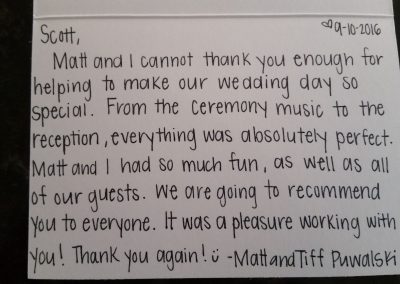 ♡9-10-2016
Scott,
Matt and I cannot thank you enough for
helping to make our wedding day so
special. From the ceremony music to the
reception, everything was absolutely perfect.
Matt and I had so much fun, as well as all
of our guests. We are going to recommend
you to everyone. It was a pleasure working with
you! Thank you again! ü -Matt and Tiff Puwalski